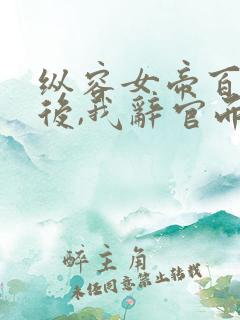 纵容女帝百
後,我辭官而
醉主角
未经同意禁止转载